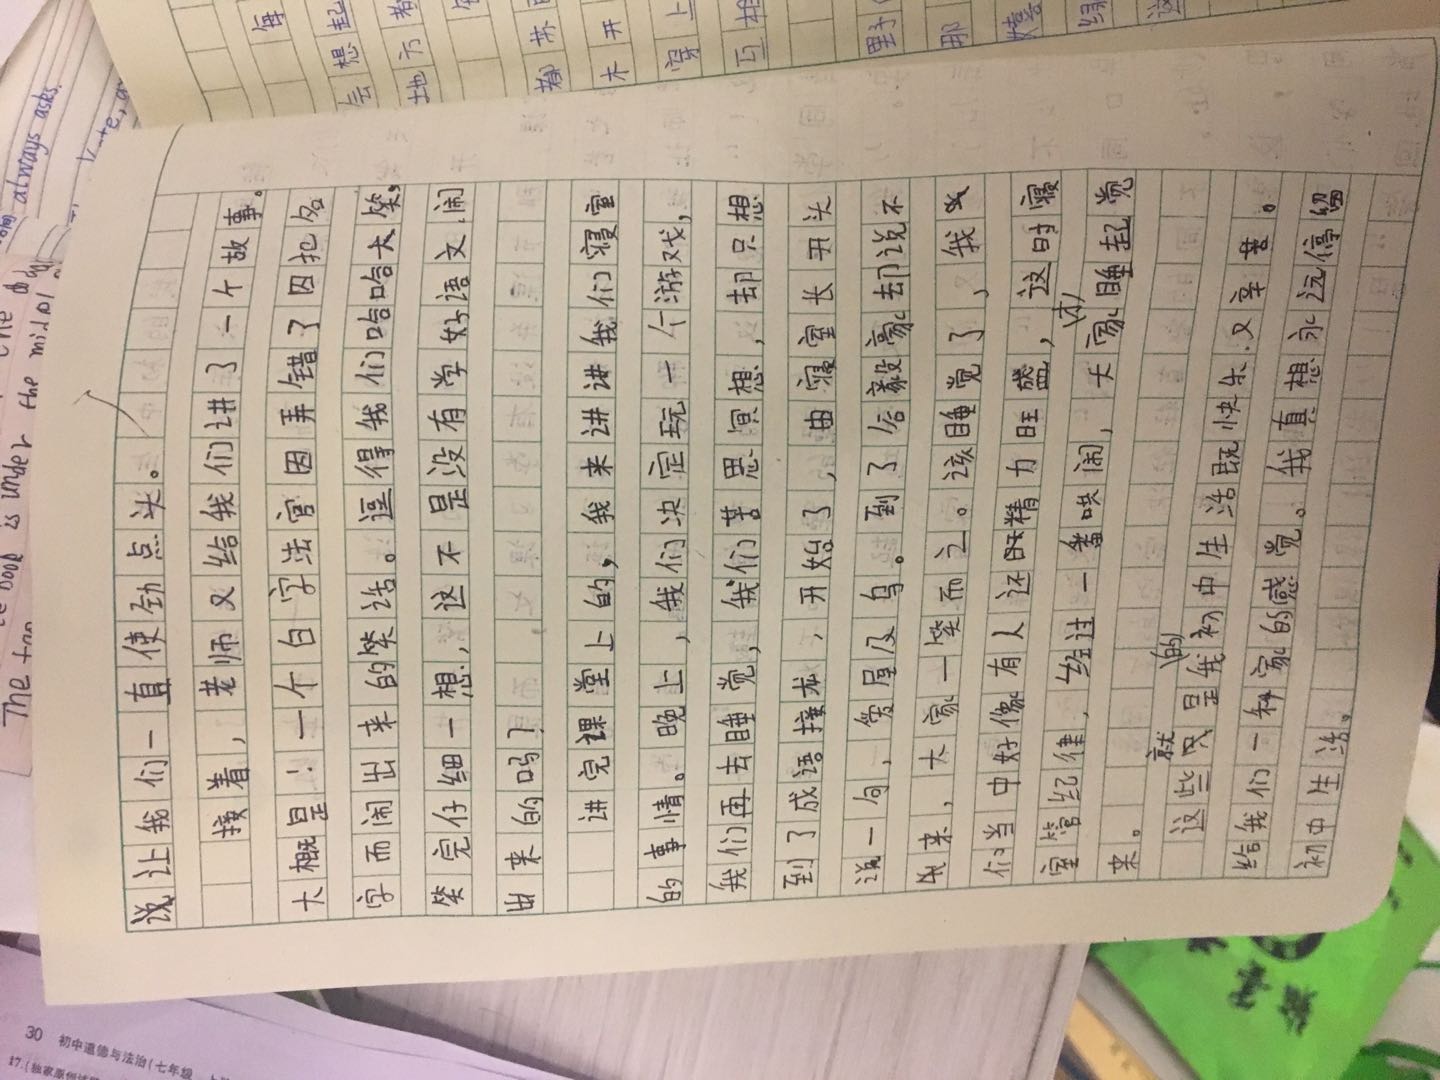 说让我们一直使劲点头。
接着，老师又给我们讲了一个故事。
大概是：一个白字法官因弄错了囚犯名
字而闹出来的笑话。逗得我们哈哈大笑，
笑完仔细一想，这不是没有学好语文闹
出来的吗？
讲完课堂上的，我来讲讲我们寝室
的事情。晚上，我们决定玩一个游戏，
我们再去睡觉，我们苦思冥想，却只想
到了成语接龙，开始了，由寝室长开头
说一句，爱屋及乌。到了俗毅豪却说不
出来，大家一笑而之。该睡觉了，我
们当中好像有人还旺精力旺盛，这时寝
室管纪律，经过一番哄闹，大家睡起觉
来。
这些就是我的初中生活既快乐又辛苦。
给我们一种家的感觉。我真想永远停留
初中生活。
always asks.
the middl
The book is under
30 初中道德与法治(七年级
17.(独家原创
每
会想起
地方
都
木开
穿上
互相
野
那
嬉
绿
这